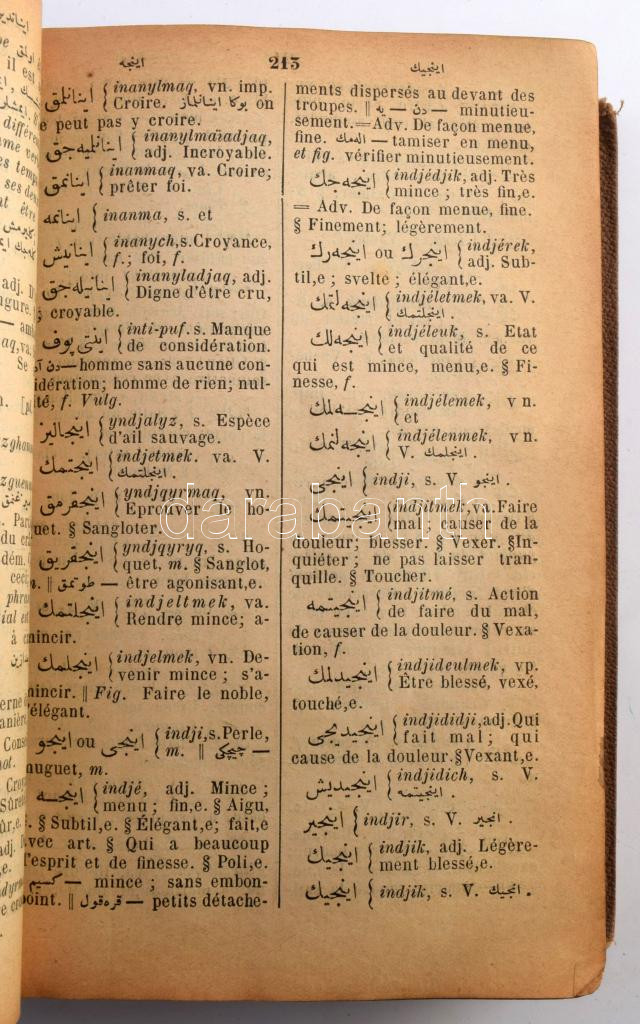 اینجه 213 اینجیك
اینانلمق { inanylmaq, vn. imp.
Croire. بوكا اینانلماز on
e peut pas y croire.
اینانلمیه‌جق { inanylmaïadjaq,
adj. Incroyable.
اینانمق { inanmaq, va. Croire;
prêter foi.
اینانمه { inanma, s. et
اینانیش { inanych, s. Croyance,
f.; foi, f.
اینانیله‌جق { inanyladjaq, adj.
Digne d'être cru,
croyable.
اینتی پوف { inti-puf. s. Manque
de considération.
homme sans aucune con-
idération; homme de rien; nul-
ité, f. Vulg.
اینجالیز { yndjalyz, s. Espèce
d'ail sauvage.
اینجتمك { indjetmek. va. V.
اینجلتمك .
اینجقرمق { yndjqyrmaq, vn.
Eprouver le ho-
quet. § Sangloter.
اینجقریق { yndjqyryq, s. Ho-
quet, m. § Sanglot,
m. ‖ طوتمق — être agonisant,e.
اینجلتمك { indjeltmek, va.
Rendre mince; a-
mincir.
اینجلمك { indjelmek, vn. De-
venir mince; s'a-
mincir. ‖ Fig. Faire le noble,
l'élégant.
اینجو ou اینجی { indji, s. Perle,
m. ‖ چیچكی —
muguet, m.
اینجـه { indjé, adj. Mince;
menu; fin,e. § Aigu,
§ Subtil,e. § Élégant,e; fait,e
avec art. § Qui a beaucoup
d'esprit et de finesse. § Poli,e.
— mince; sans embon-
point. ‖ قره‌قول — petits détache-
ments dispersés au devant des
troupes. ‖ دن — یه — minutieu-
sement.=Adv. De façon menue,
fine. المك — tamiser en menu,
et fig. vérifier minutieusement.
اینجه‌جك { indjédjik, adj. Très
mince; très fin,e.
= Adv. De façon menue, fine.
§ Finement; légèrement.
اینجرك ou اینجه‌رك { indjérek,
adj. Sub-
til,e; svelte; élégant,e.
اینجه‌لتمك { indjéletmek, va. V.
اینجلتمك .
اینجه‌لك { indjéleuk, s. Etat
et qualité de ce
qui est mince, menu,e. § Fi-
nesse, f.
اینجـه‌لمك { indjélemek, vn.
et
اینجه‌لنمك { indjélenmek, vn.
V. اینجلمك .
اینجی { indji, s. V. اینجو .
اینجیتمك { indjitmek, va. Faire
mal; causer de la
douleur; blesser. § Vexer. §In-
quiéter; ne pas laisser tran-
quille. § Toucher.
اینجیتمه { indjitmé, s. Action
de faire du mal,
de causer de la douleur. § Vexa-
tion, f.
اینجیدلمك { indjideulmek, vp.
Être blessé, vexé,
touché,e.
اینجیدیجی { indjididji, adj. Qui
fait mal; qui
cause de la douleur.§Vexant,e.
اینجیدیش { indjidich, s. V.
اینجیتمه .
اینجیر { indjir, s. V. انجیر .
اینجیك { indjik, adj. Légère-
ment blessé,e.
اینجیك { indjik, s. V. انجیك .
darabanth